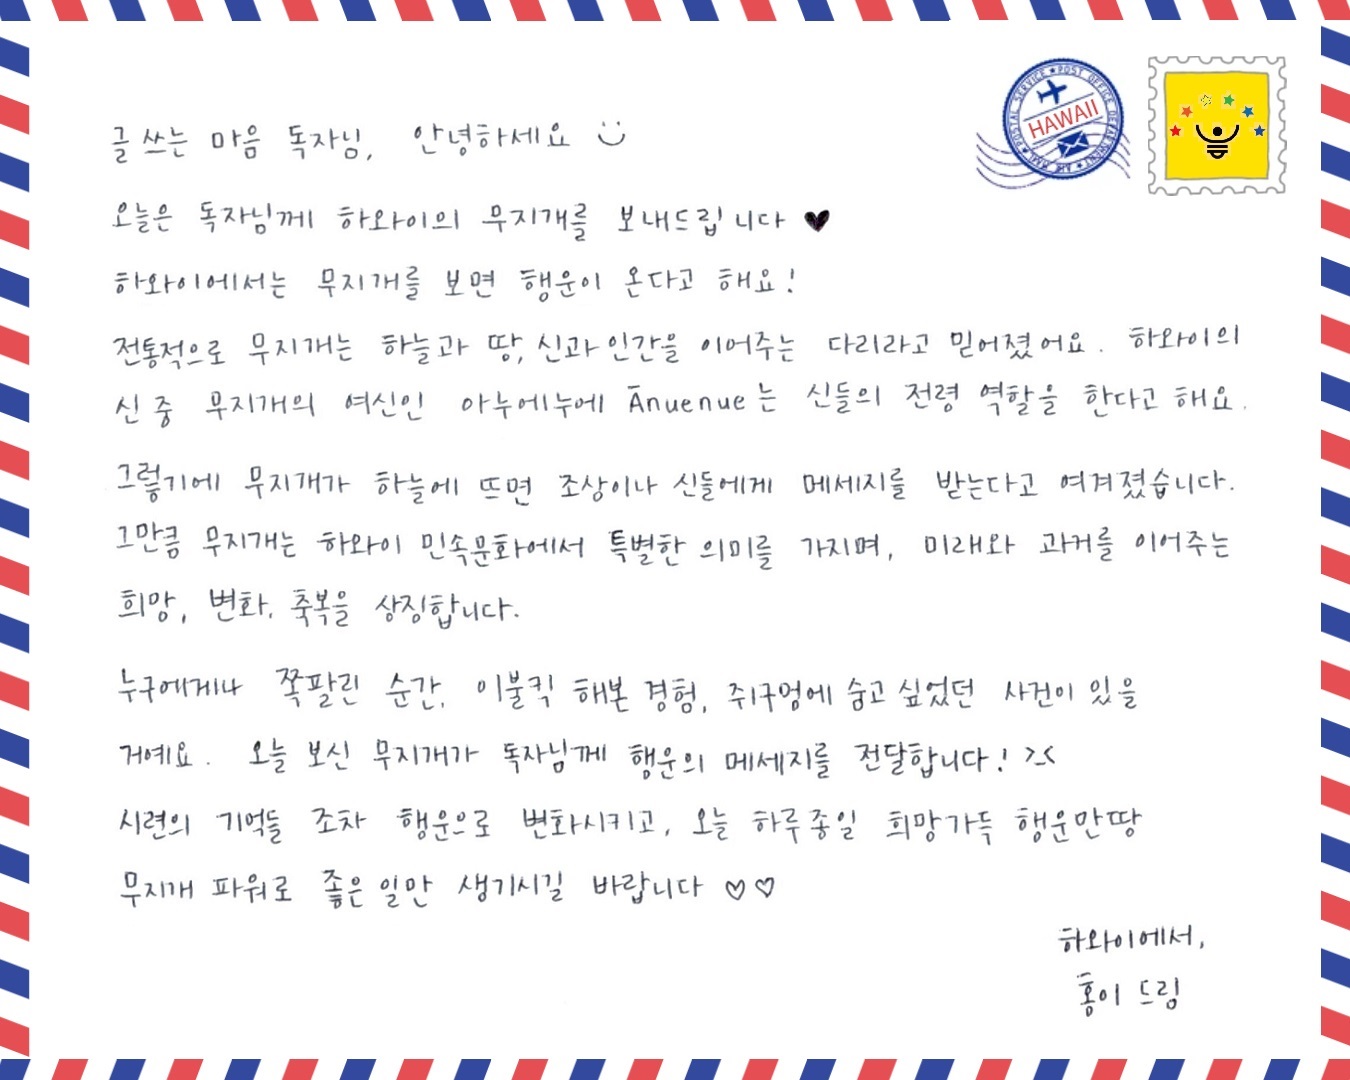 글 쓰는 마음 독자님, 안녕하세요
HAWAII
오늘은 독자님께 하와이의 무지개를 보내드립니다 ♥
하와이에서는 무지개를 보면 행운이 온다고 해요!
전통적으로 무지개는 하늘과 땅, 신과 인간을 이어주는 다리라고 믿어졌어요. 하와이의
신 중 무지개의 여신인 아누에누에 Ānuenue는 신들의 전령 역할을 한다고 해요.
그렇기에 무지개가 하늘에 뜨면 조상이나 신들에게 메세지를 받는다고 여겨졌습니다.
그만큼 무지개는 하와이 민속문화에서 특별한 의미를 가지며, 미래와 과거를 이어주는
희망, 변화, 축복을 상징합니다.
누구에게나 쪽팔린 순간, 이불킥 해본 경험, 쥐구멍에 숨고 싶었던 사건이 있을
거예요. 오늘 보신 무지개가 독자님께 행운의 메세지를 전달합니다! >.<
시련의 기억들 조차 행운으로 변화시키고, 오늘 하루종일 희망가득 행운만땅
무지개 파워로 좋은 일만 생기시길 바랍니다 ♡♡
하와이에서,
홍이 드림